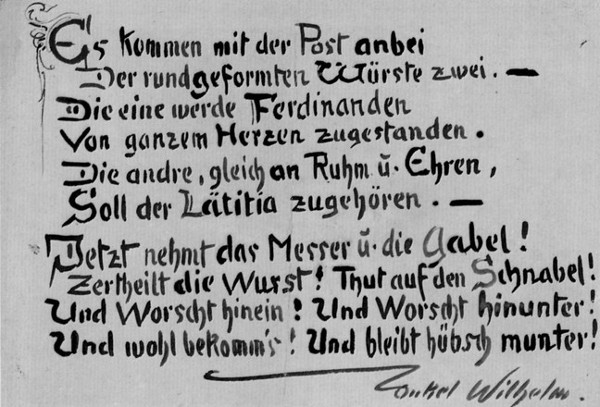 Es kommen mit der Post anbei
Der rundgeformten Würste zwei. —
Die eine werde Ferdinanden
Von ganzem Herzen zugestanden.
Die andre, gleich an Ruhm ŭ. Ehren,
Soll der Lätitia zugehören. —
Jetzt nehmt das Messer ŭ. die Gabel!
Zertheilt die Wurst! Thut auf den Schnabel!
Und Worscht hinein! Und Worscht hinunter!
Und wohl bekomm's! Und bleibt hübsch munter!
Onkel Wilhelm.